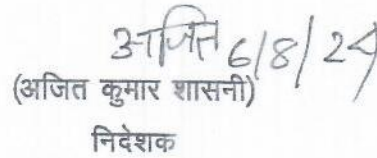 अजित 6/8/24
(अजित कुमार शासनी)
निदेशक